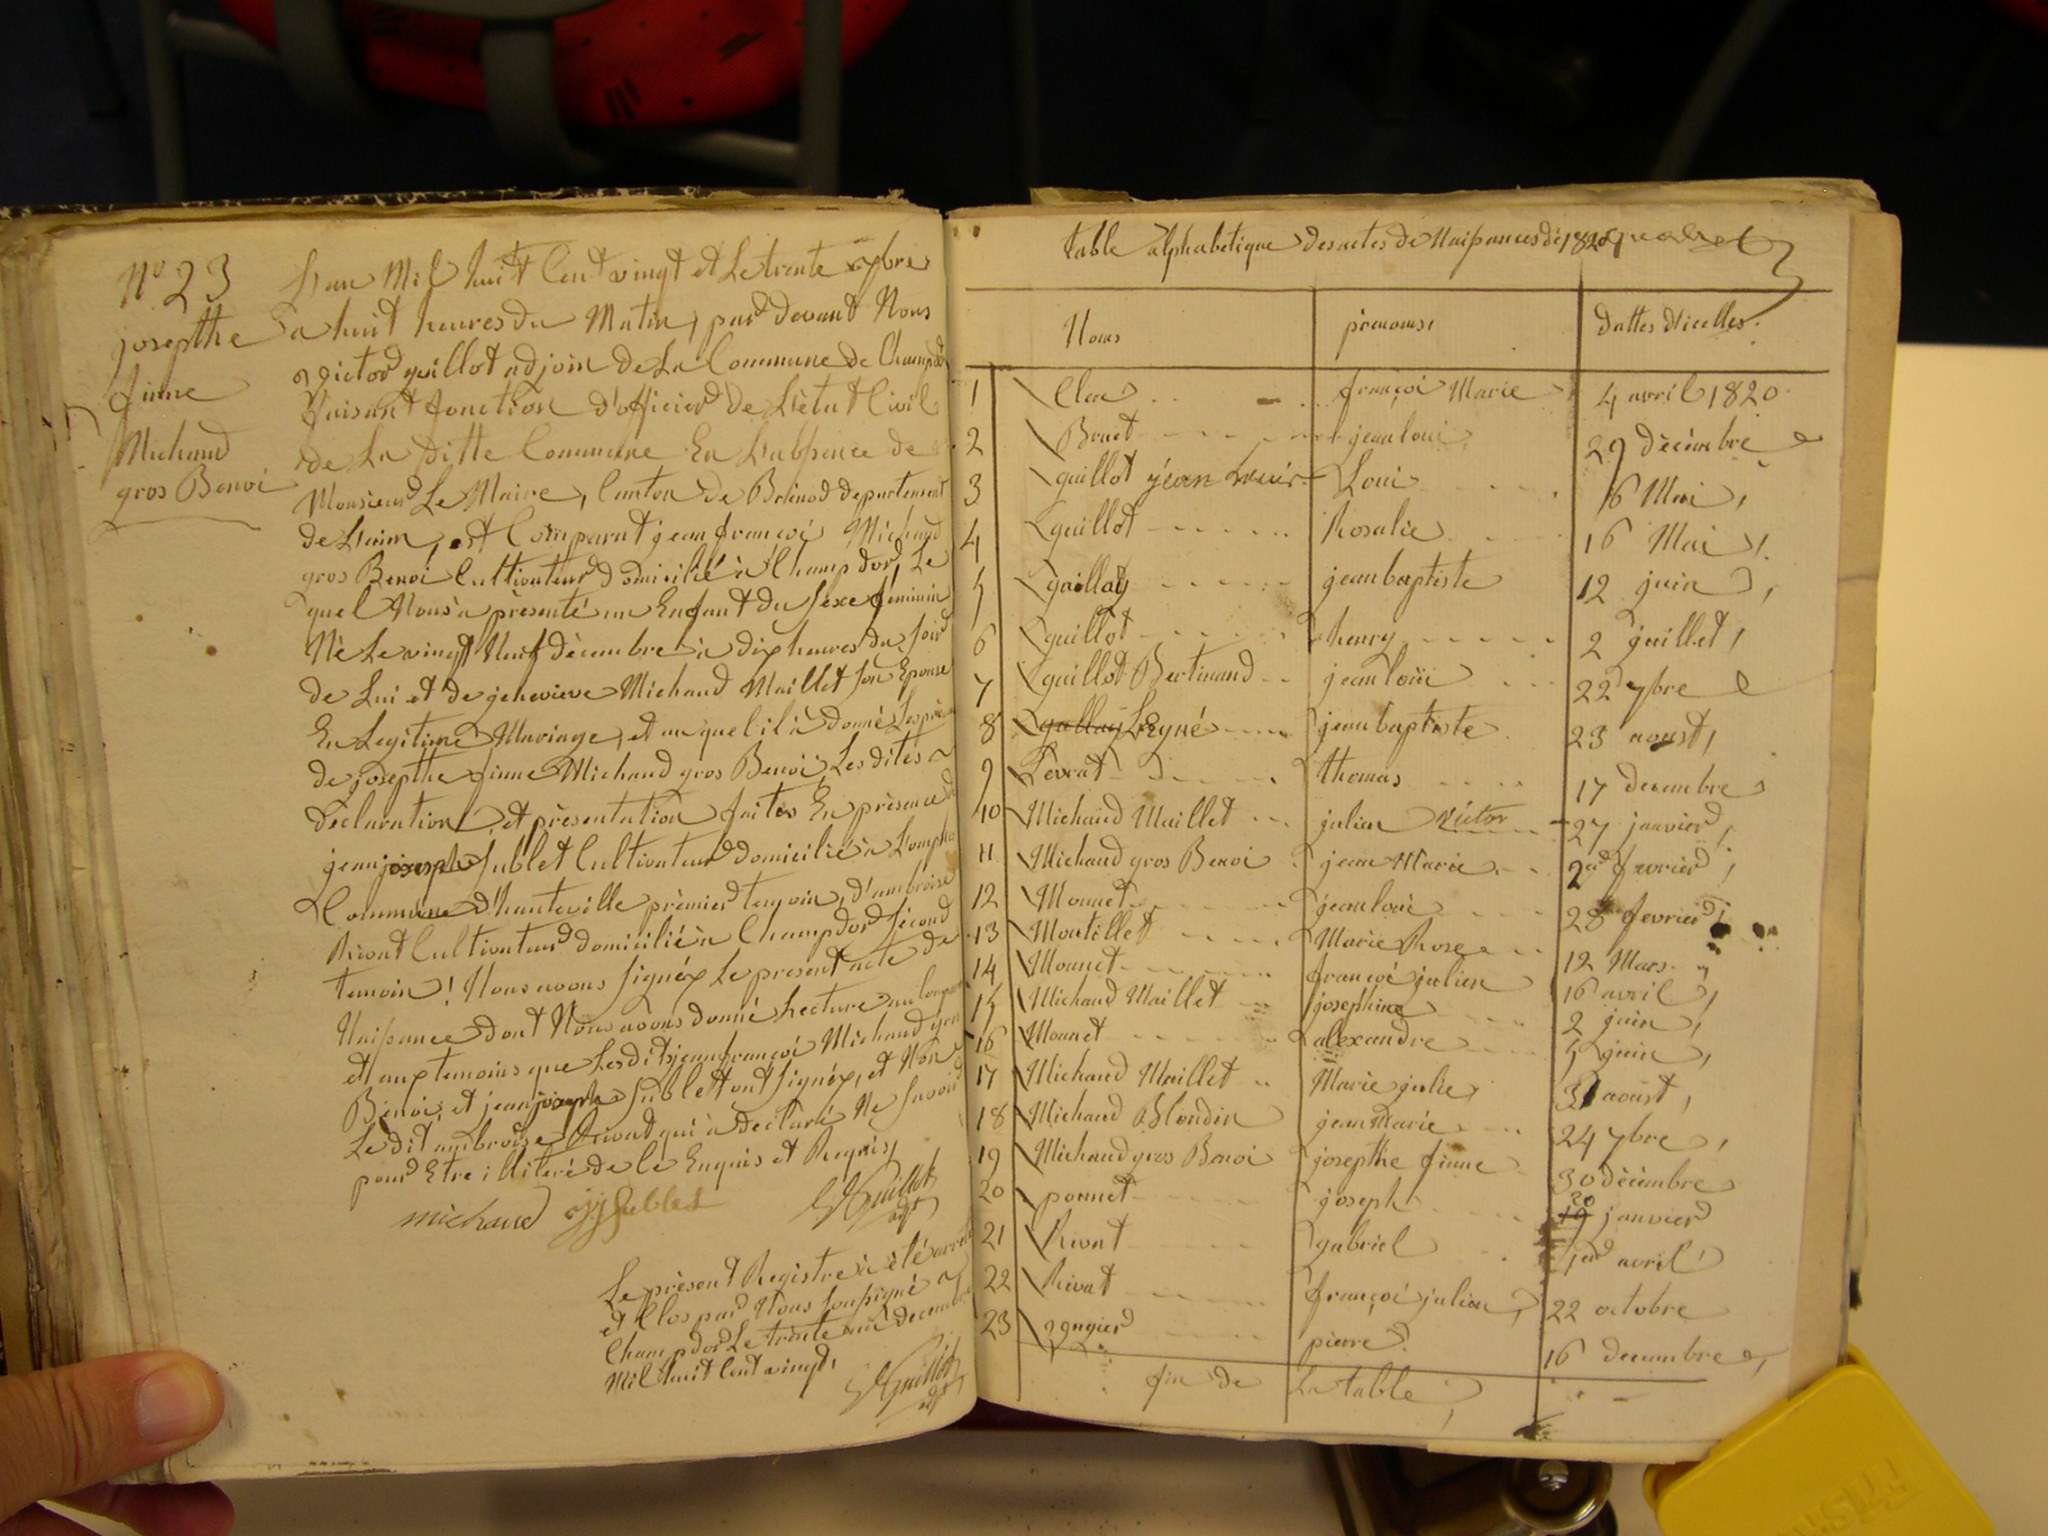 No 23
josepthe
finne
Michaud
gros Benoi
L'an Mil huit Cent vingt et Le trente xbre
a huit heures du Matin, pard devant Nous
victor guillot adjoin de La Commune de Champdor
faisant fonction d'officier de L'état Civil
de La ditte Commune En L'absence de
Monsieur Le Maire, Canton de Brénod departement
de L'ain, est Comparut jean françoi Michaud
gros Benoi Cultivateur domicilié à Champdor, Le
quel Nous a présenté un Enfant du sexe féminin
Né Le vingt Neuf décembre à dix heures du soir
de Lui et de genevieve Michaud Maillet son Epouse
En Legitime Mariage, et au quel il à donné Les prénoms
de josepthe finne Michaud gros Benoi, Les dites
déclaration et présentation faites En présence de
jean joseph Sublet Cultivateur domicilié à
Commune d'hauteville premier temoin, d'ambroise
Rivat Cultivateur domicilié à Champdor second
temoin! Nous avons signéx Le present acte de
Naissance dont Nous avons donné Lecture au
et aux temoins que Lesdits jean françoi Michaud gros
Benoi, et jean joseph Sublet ont signéx, et Non
Le dit ambroise Rivat qui à declaré Ne savoir
pour Etre illiteré de le Enquis et Requis,
michaud jj Sublet Guillot
adjt
Le présent Registre à été arreté
et Clos par Nous soussigné à
Champdor Le trente un decembre
Mil huit Cent vingt,
Guillot
adjt
table alphabetique des actes de Naissances de 1820
Noms prenoms, dattes d'icelles.
1 Clerc françoi Marie 4 avril 1820
2 Bonet jean loui 29 décembre
3 guillot jean Louis Loui 6 Mai,
4 guillot Rosalie 16 Mai,
5 gaillay jean baptiste 12 juin,
6 guillot henry 2 juillet,
7 guillot Bertinand jean loui 22 7bre
8 gallay Leyné jean baptiste 23 aoust,
9 Levrat thomas 17 decembre
10 Michaud Maillet julien victor 27 janvier,
11 Michaud gros Benoi jean Marie 2ed fevrier,
12 Monnet jean loui 28 fevrier,
13 Montillet Marie Rose 12 Mars
14 Monnet françoi julien 16 avril,
15 Michaud Maillet josephine 2 juin,
16 Monnet alexandre 5 juin,
17 Michaud Maillet Marie julie, 31 aoust,
18 Michaud Blondin jean Marie 24 7bre,
19 Michaud gros Benoi josepthe finne 30 décembre
20 ponnet joseph 19 20 janvier
21 Rivat gabriel 1er avril
22 Rivat françoi julien, 22 octobre
23 pierre 16 decembre,
fin de La table,